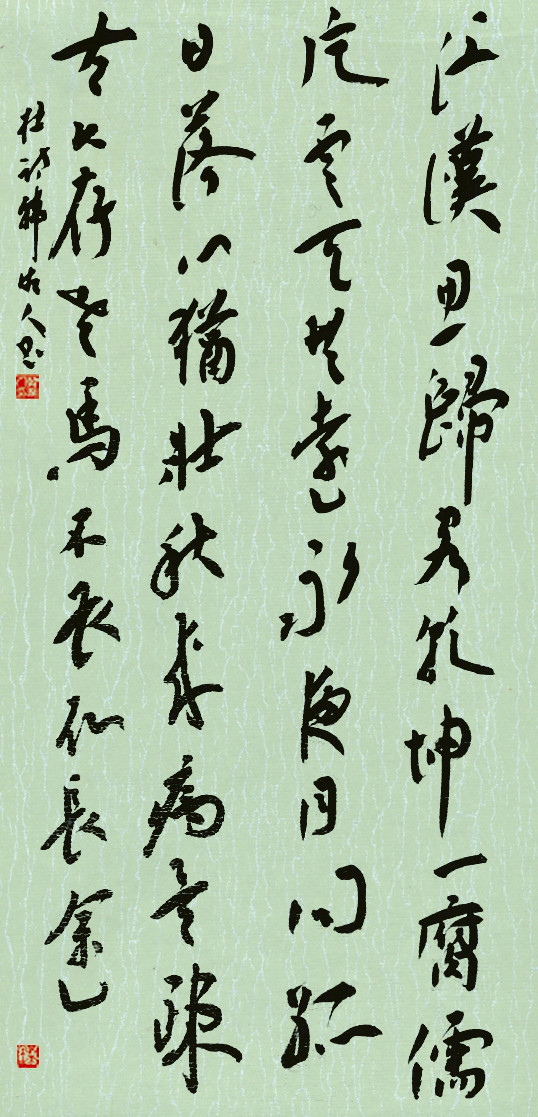 江漢思歸客乾坤一腐儒
片雲天共遠永夜月同孤
日落心猶壯秋風病欲疎
古來存老馬不必取長途
杜詩